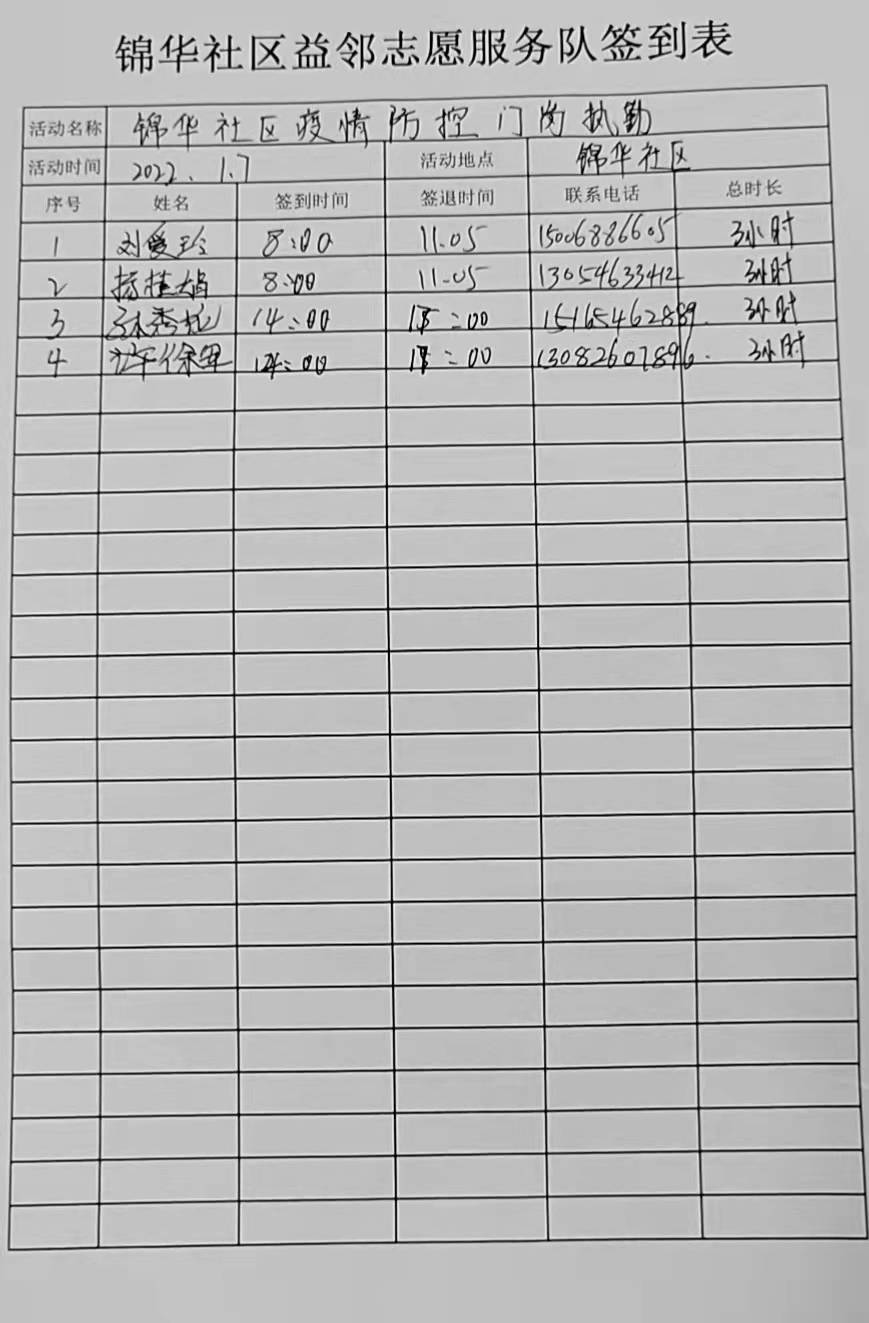 锦华社区益邻志愿服务队签到表
活动名称 锦华社区疫情防控门岗执勤
活动时间 2022.1.7 活动地点 锦华社区
序号 姓名 签到时间 签退时间 联系电话 总时长
1 刘爱玲 8:00 11.05 15006886605 3小时
2 8:00 11.05 13054633412 3小时
3 14:00 :00 15165462889. 3小时
4 14:00 :00 13082607896. 3小时